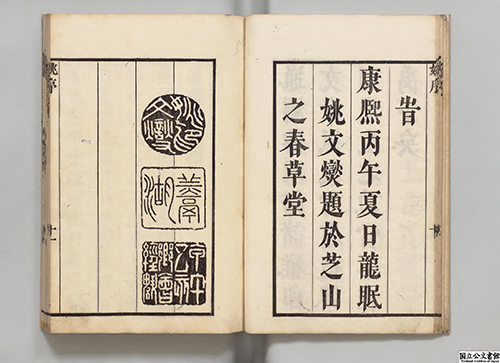 旹
康熙丙午夏日龍眠
姚文燮題於芝山
之春草堂
姚印文燮
羹湖
姚序
国立公文書館